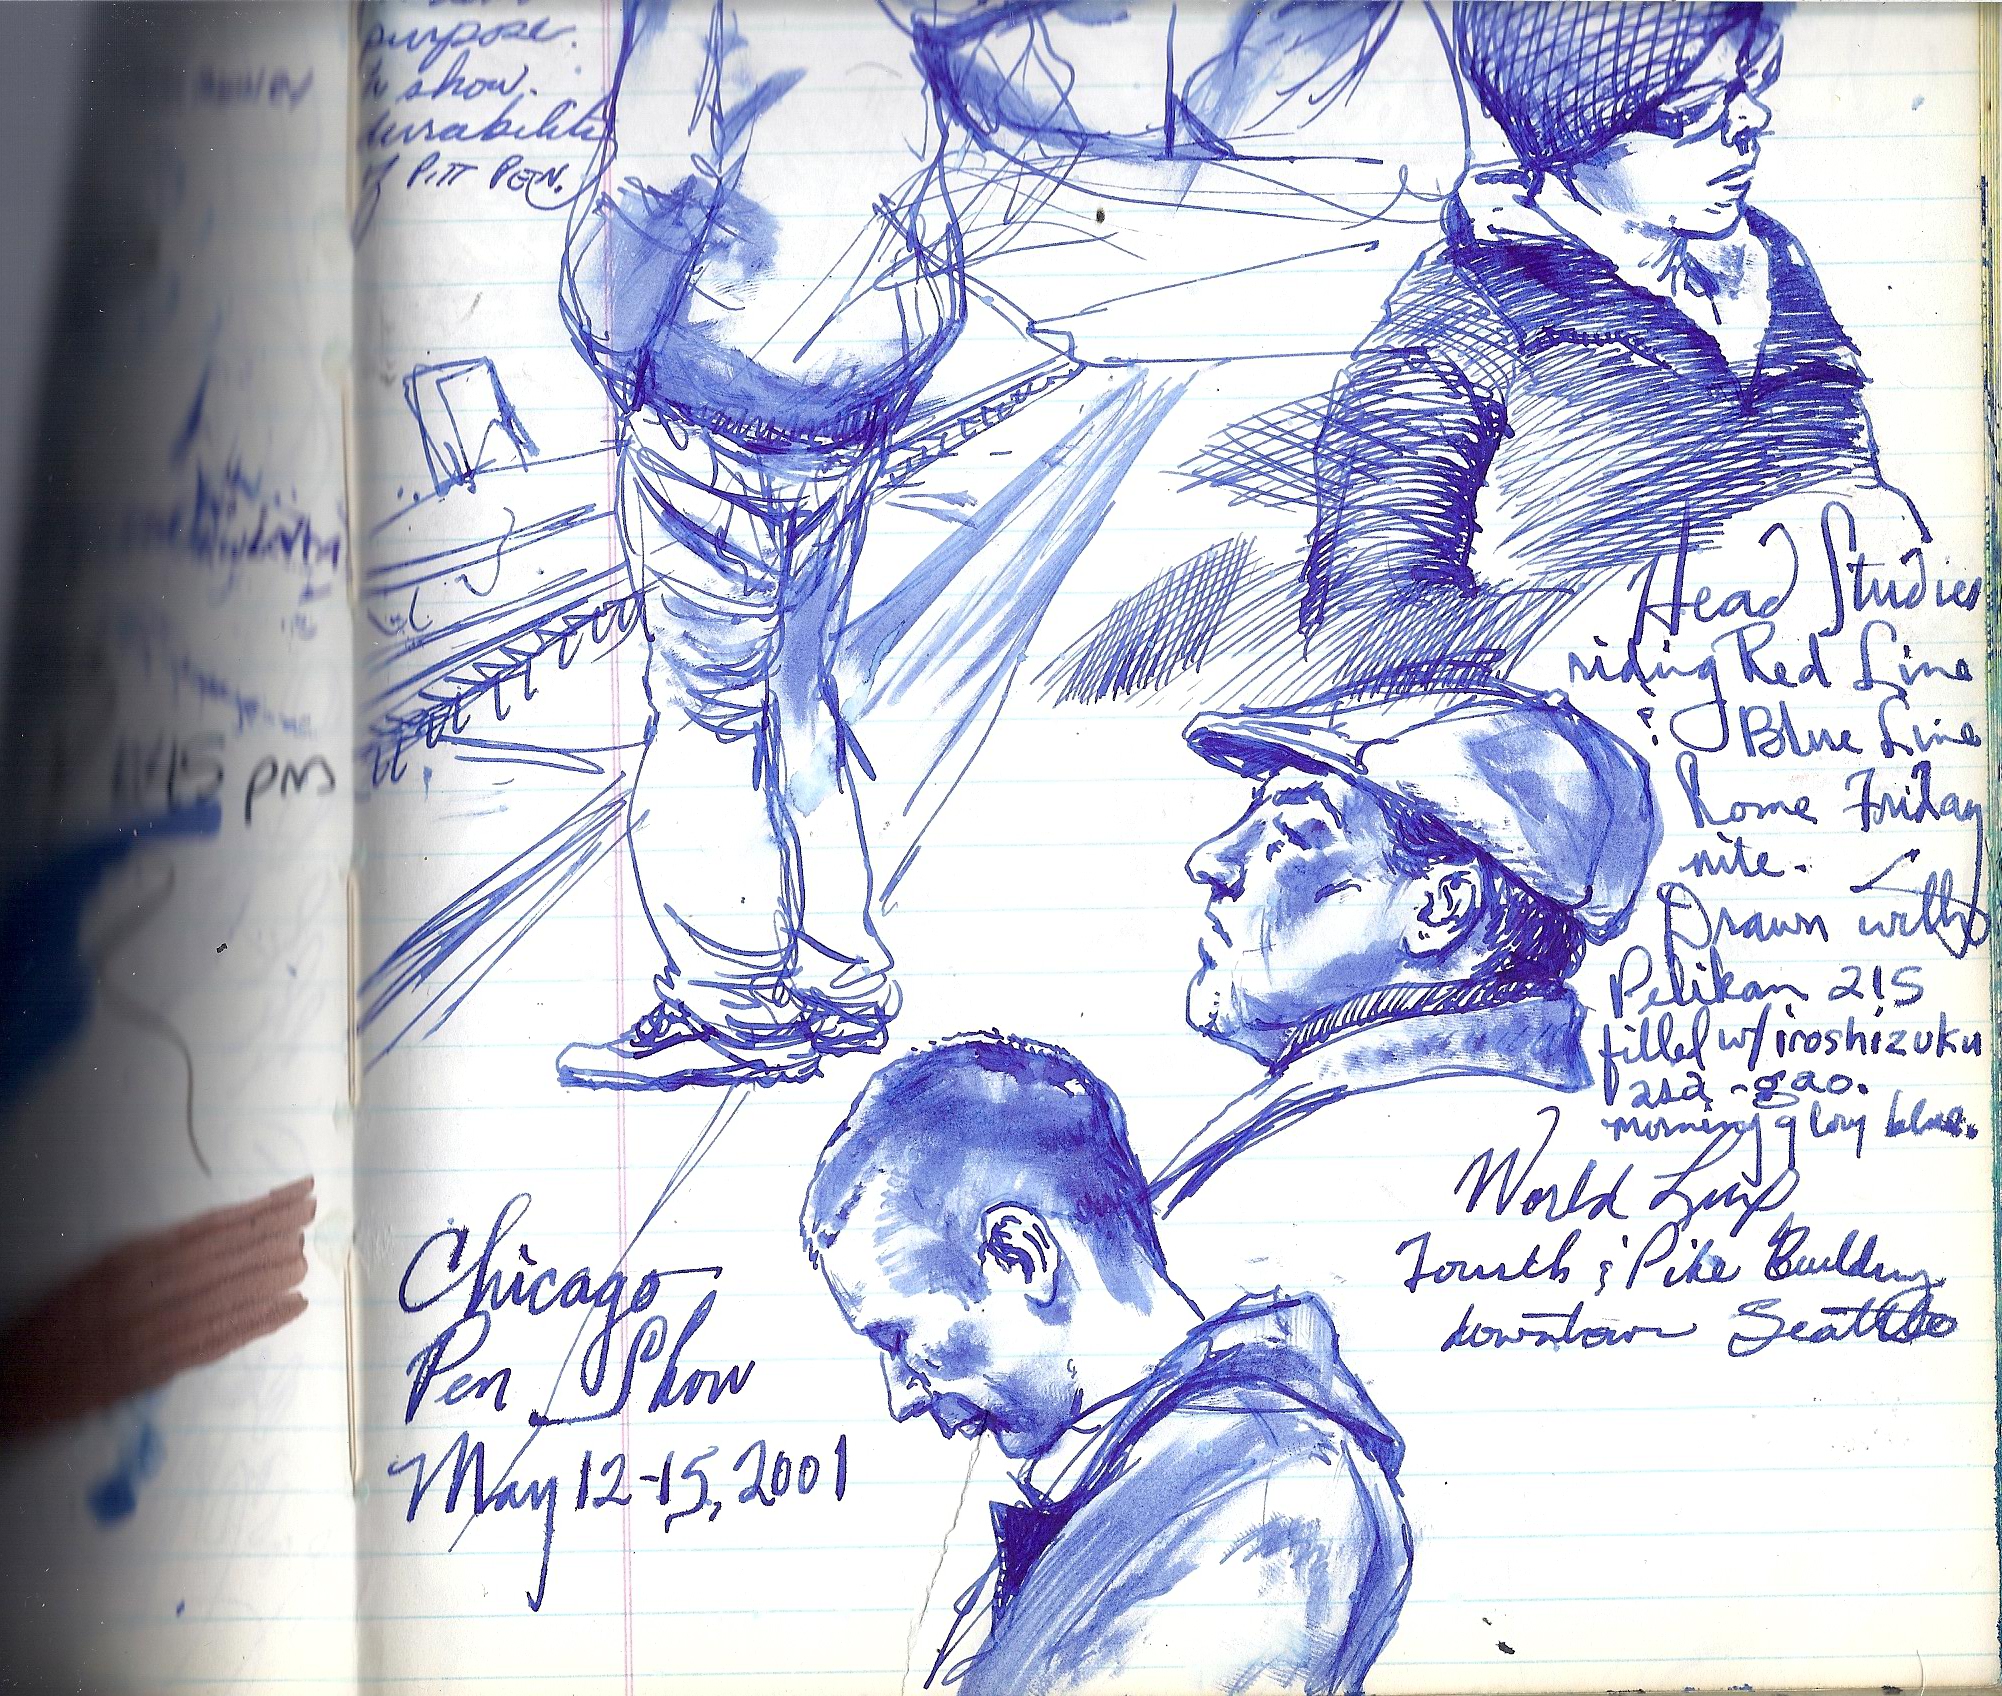 purpose.
show.
durability
of PITT PEN.
11:45 pm
Head Studies
riding Red Line
& Blue Line
home Friday
nite.
Drawn with
Pelikan 215
filled w/ iroshizuku
asa-gao.
morning glory blue.
World Lux
Fourth & Pike Building
downtown Seattle
Chicago
Pen Show
May 12-15, 2001